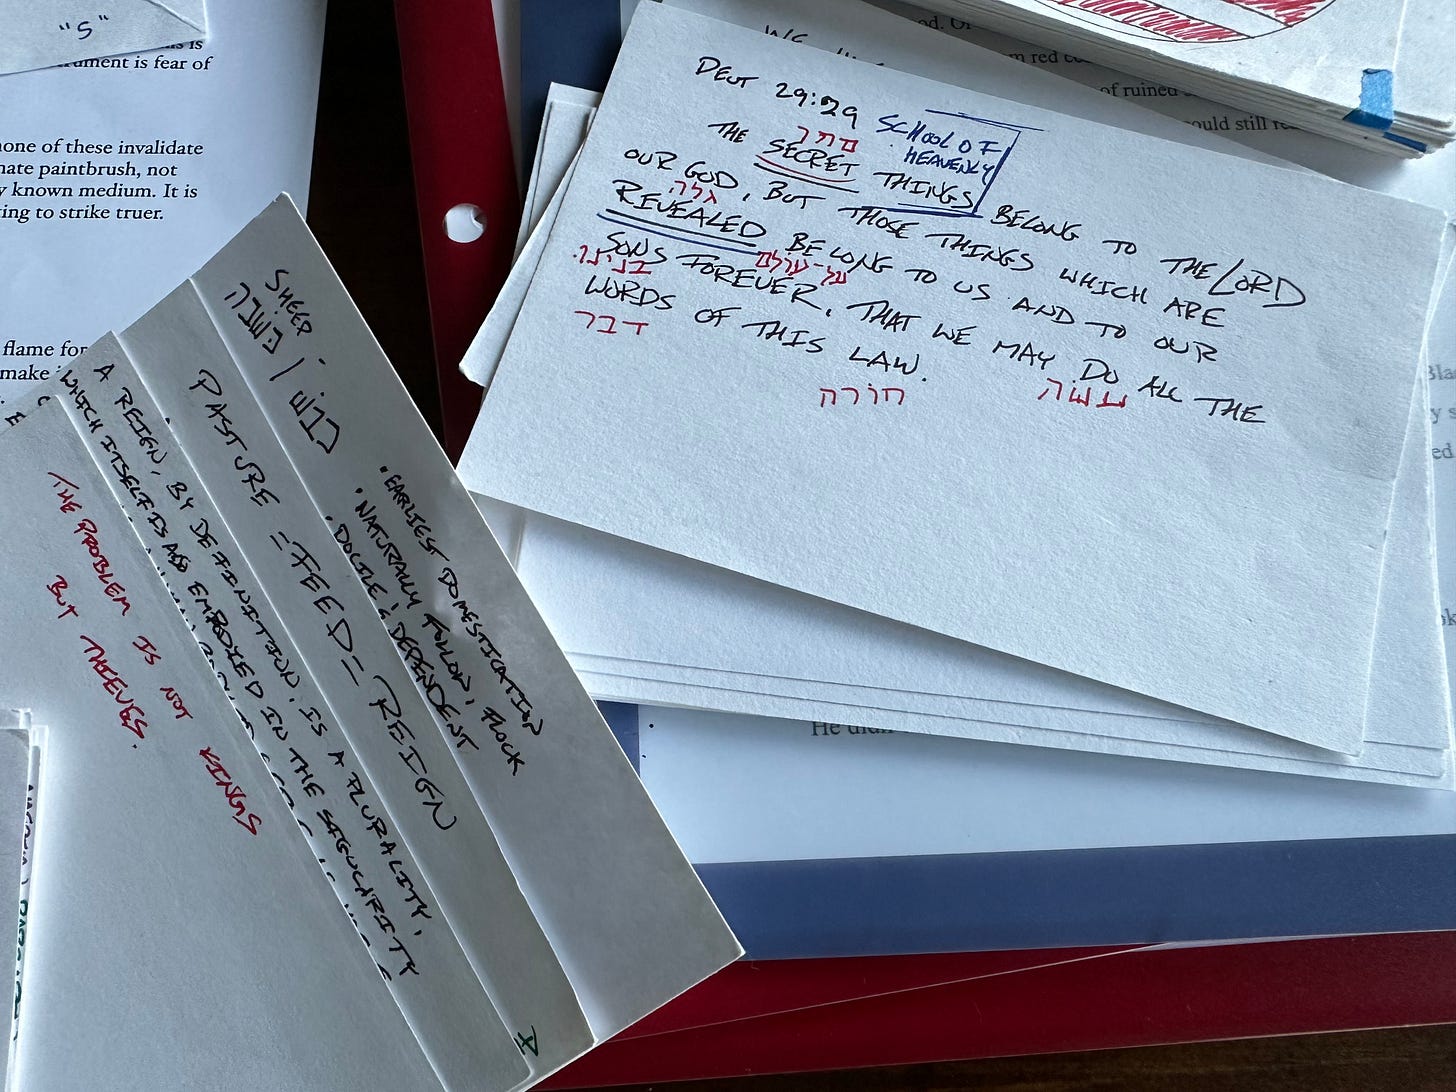 "S"
ument is fear of
none of these invalidate
nate paintbrush, not
y known medium. It is
ing to strike truer.
flame for
make
DEUT 29:29 SCHOOL OF
HEAVENLY
סתר
THE SECRET THINGS BELONG TO THE LORD
OUR GOD, BUT THOSE THINGS WHICH ARE
גלה
REVEALED BELONG TO US AND TO OUR
SONS FOREVER, THAT WE MAY DO ALL THE
בנינו עד-עולם
WORDS OF THIS LAW.
דבר תורה עשה
SHEEP:
• EARLIEST DOMESTICATION
• NATURALLY FOLLOW, FLOCK
• DOCILE & DEPENDENT
PASTURE = FEED = REIGN
A REIGN, BY DEFINITION, IS A PLURALITY,
WHICH ITSELF IS EMBODIED IN THE SINGULARITY
THE PROBLEM IS NOT KINGS
BUT THIEVES.
m red
of ruined
ould still
He didn